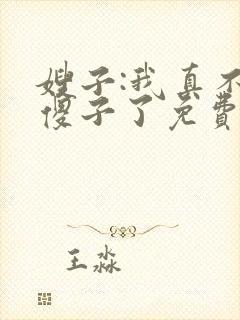 嫂子:我真不
傻子了免费
王淼